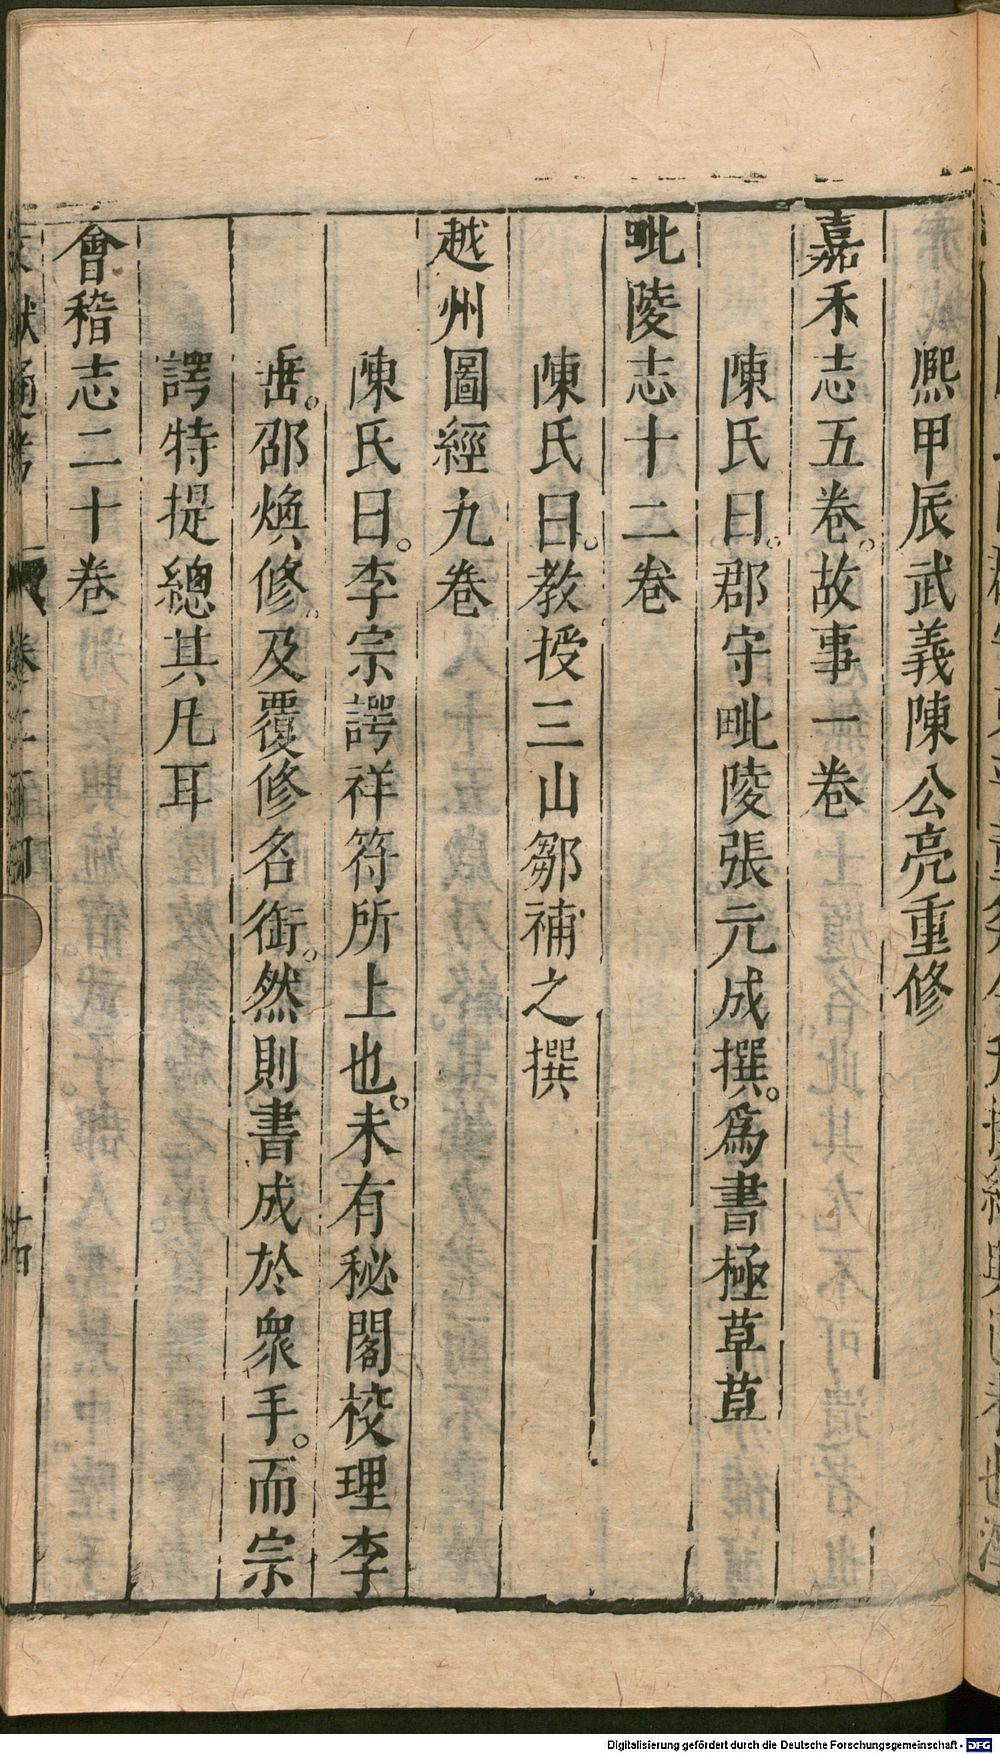 熈甲辰武義陳公亮重修
嘉禾志五卷。故事一卷
陳氏曰。郡守毗陵張元成撰。爲書極草草
毗陵志十二卷
陳氏曰。教授三山鄒補之撰
越州圖經九卷
陳氏曰。李宗諤祥符所上也。末有秘閣校理李
垂。邵煥修。及覆修名銜。然則書成於衆手。而宗
諤特提總其凡耳
會稽志二十卷
文獻通考 卷二百四
Digitalisierung gefördert durch die Deutsche Forschungsgemeinschaft - DFG